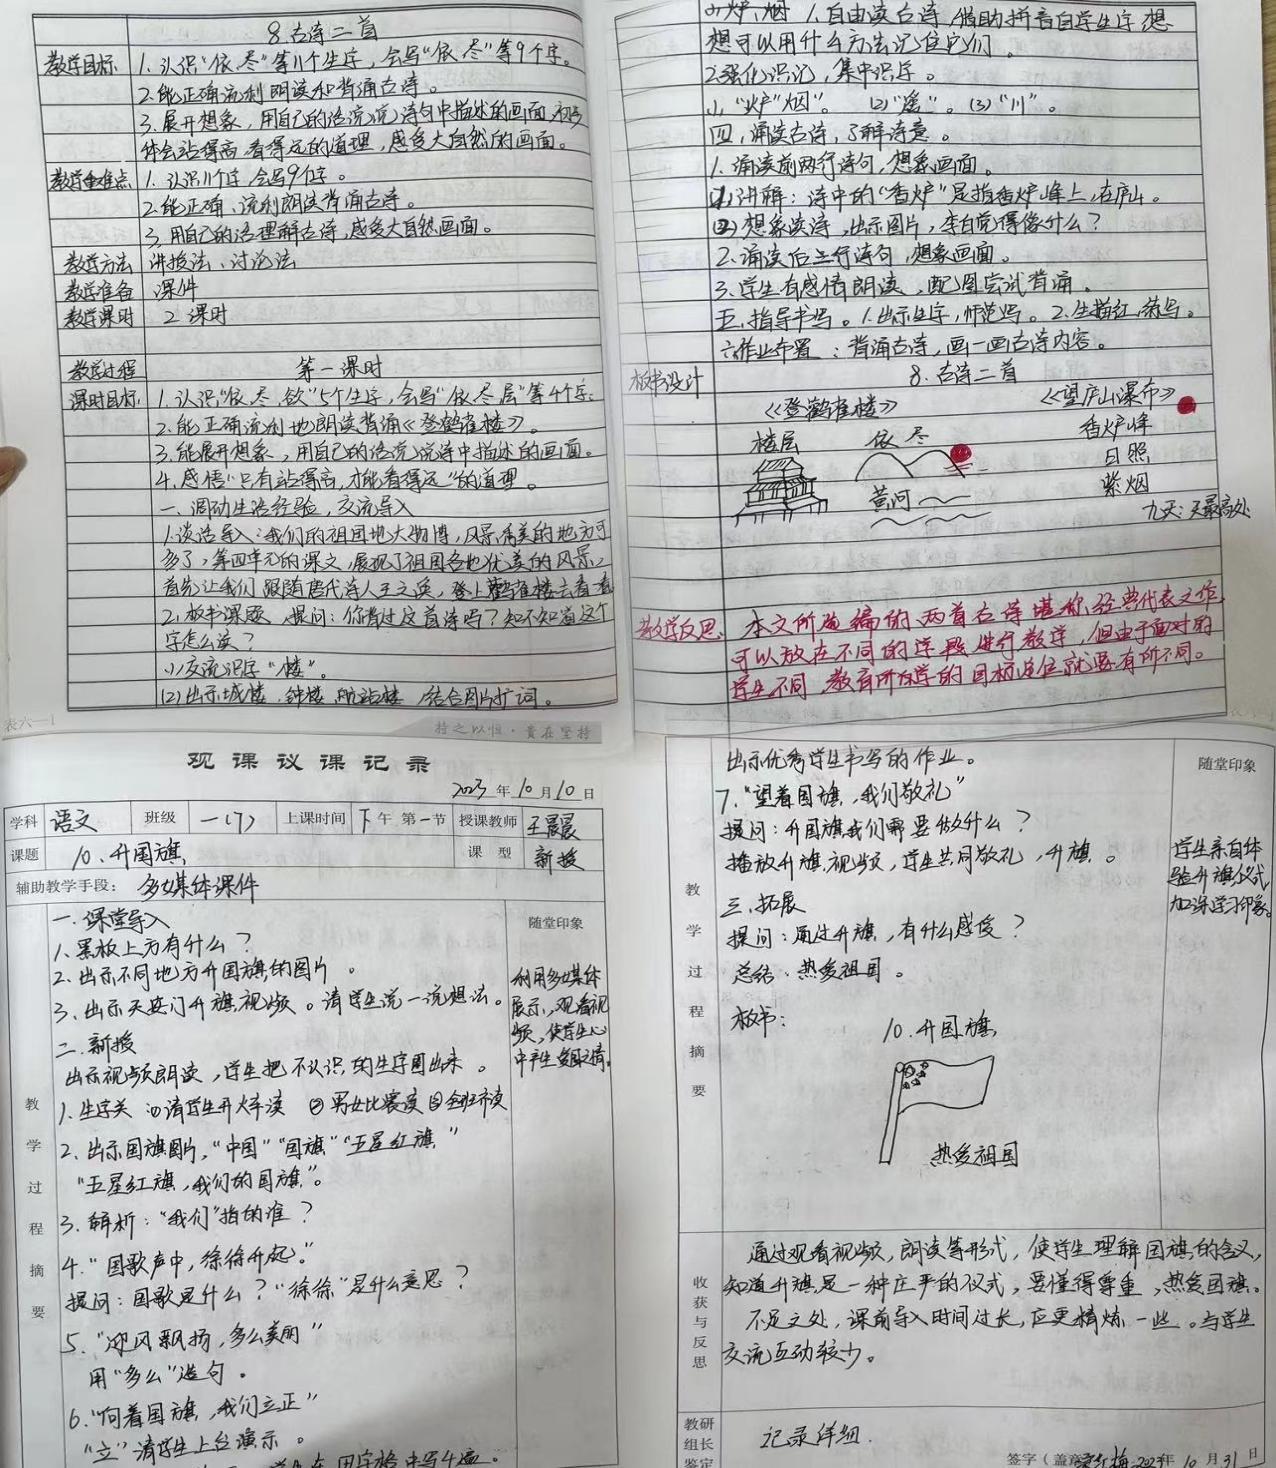 8.古诗二首
教学目标 1.认识“依、尽”等11个生字，会写“依、尽”等9个字。
2.能正确流利朗读和背诵古诗。
3.展开想象，用自己的话说说诗句中描述的画面，初步
体会站得高，看得远的道理，感受大自然的画面。
教学重难点 1.认识11个字，会写9个字。
2.能正确、流利朗读背诵古诗。
3.用自己的话理解古诗，感受大自然画面。
教学方法 讲授法、讨论法
教学准备 课件
教学课时 2课时
教学过程 第一课时
课时目标 1.认识“依、尽、欲”5个生字，会写“依、尽、层”等4个字。
2.能正确流利地朗读背诵《登鹳雀楼》。
3.能展开想象，用自己的话说一说诗中描述的画面。
4.感悟“只有站得高，才能看得远”的道理。
一、调动生活经验，交流导入
1.谈话导入：我们的祖国地大物博，风景秀美的地方可
多了，第四单元的课文，展现了祖国各地优美的风景，
首先让我们跟随唐代诗人王之涣，登上鹳雀楼去看一看
2.板书课题，提问：你背过这首诗吗？知不知道这个
字怎么读？
(1)交流识字“楼”。
(2)出示城楼、钟楼、航站楼，结合图片扩词。
表六—1
持之以恒·贵在坚持
炉、烟 1.自由读古诗，借助拼音自学生字，想
想可以用什么方法记住它们。
2.强化识记，集中识字。
(1)“炉”“烟”。 (2)“遥”。(3)“川”。
四、诵读古诗，了解诗意。
1.诵读前两行诗句，想象画面。
(1)讲解：诗中的“香炉”是指香炉峰上，在庐山。
(2)想象读诗，出示图片，李白觉得像什么？
2.诵读后两行诗句，想象画面。
3.学生有感情朗读，配图尝试背诵。
五、指导书写。1.出示生字，师范写。2.生描红，练写。
六、作业布置：背诵古诗，画一画古诗内容。
板书设计 8.古诗二首
《登鹳雀楼》 《望庐山瀑布》
楼层 依 尽 香炉峰
日照
黄河 紫烟
九天：天最高处
教学反思 本文所选编的两首古诗堪称经典代表之作，
可以放在不同的学段进行教学，但由于面对的
学生不同，教育所学的目标定位就要有所不同。
观课议课记录
2023年10月10日
学科 语文 班级 一(7) 上课时间 下午第一节 授课教师 王晨晨
课题 10、升国旗 课型 新授
辅助教学手段： 多媒体课件
教学过程摘要
随堂印象
一.课堂导入
1.黑板上方有什么？
2.出示不同地方升国旗的图片。
3.出示天安门升旗视频。请学生说一说想法。
利用多媒体
展示，观看视
频，使学生心
中产生爱国之情。
二.新授
出示视频朗读，学生把不认识的生字圈出来。
1.生字关 ①请学生开火车读 ②男女比赛读 ③全班齐读
2.出示国旗图片，“中国”“国旗”“五星红旗”
“五星红旗，我们的国旗”。
3.解析：“我们”指的谁？
4.“国歌声中，徐徐升起。”
提问：国歌是什么？“徐徐”是什么意思？
5.“迎风飘扬，多么美丽”
用“多么”造句。
6.“向着国旗，我们立正”
“立”请学生上台演示。
田字格中写4遍。
出示优秀学生书写的作业。
7.“望着国旗，我们敬礼”
提问：升国旗我们需要做什么？
播放升旗视频，学生共同敬礼，升旗。
随堂印象
学生亲自体
验升旗仪式
加深学习印象。
教学过程摘要
三.拓展
提问：通过升旗，有什么感受？
总结：热爱祖国。
板书：
10.升国旗
热爱祖国
收获与反思
通过观看视频，朗读等形式，使学生理解国旗的含义，
知道升旗是一种庄严的仪式，要懂得尊重，热爱国旗。
不足之处，课前导入时间过长，应更精炼一些。与学生
交流互动较少。
教研组长鉴定
记录详细.
签字（盖章） 2023年10月31日